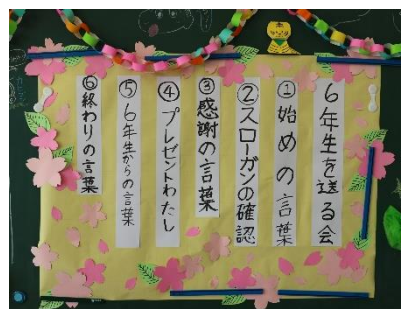 6年生を送る会
①始めの言葉
②スローガンの確認
③感謝の言葉
④プレゼントわたし
⑤6年生からの言葉
⑥終わりの言葉